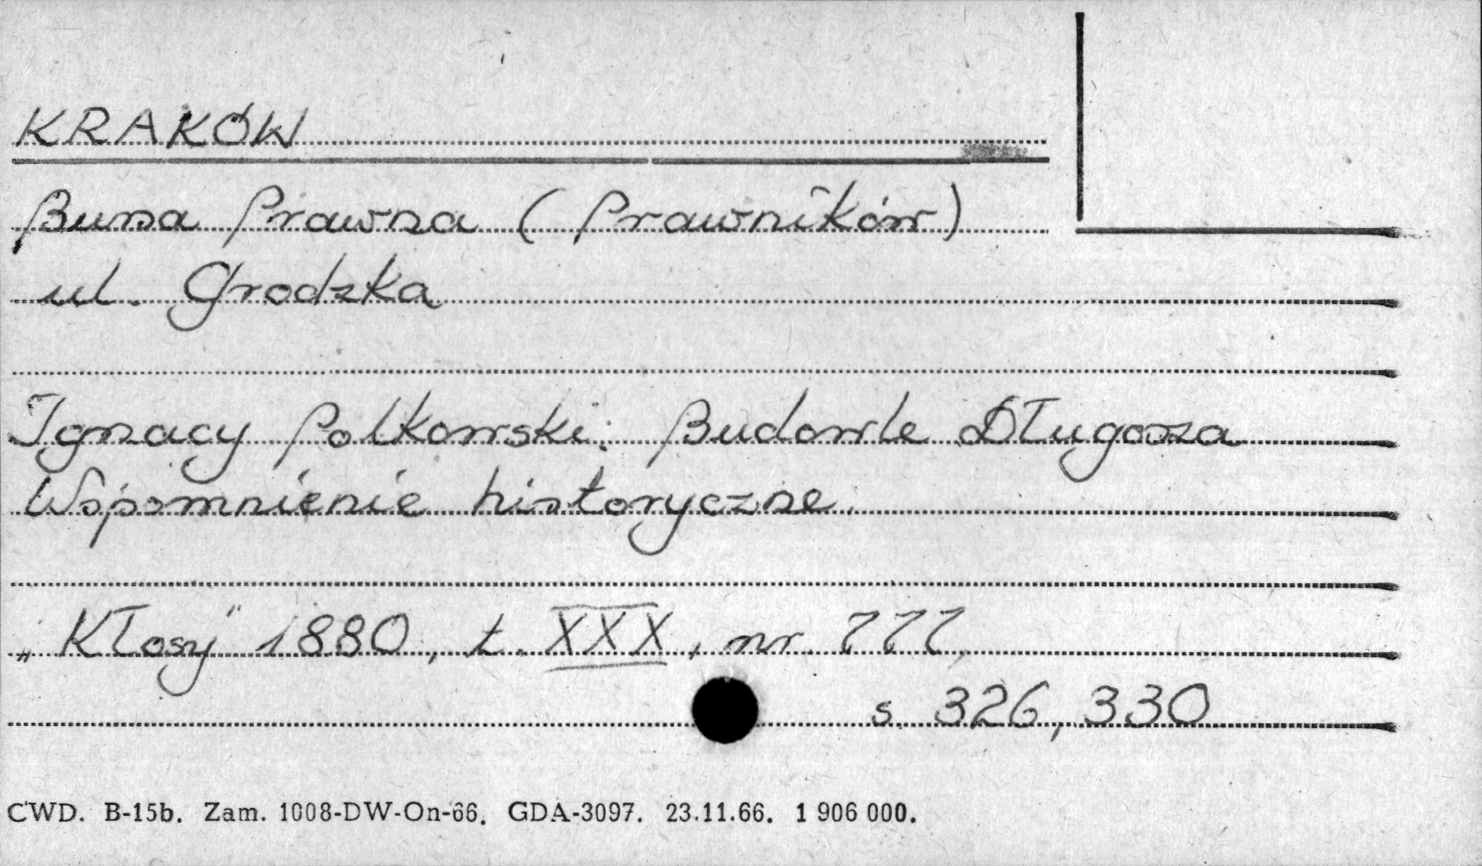 KRAKÓW
Bursa Prawna (Prawników)
ul. Grodzka
Ignacy Polkowski: Budowle Długosza
Wspomnienie historyczne.
„Kłosy" 1880, t. XXX, nr. 777,
s. 326, 330
CWD. B-15b. Zam. 1008-DW-On-66. GDA-3097. 23.11.66. 1 906 000.